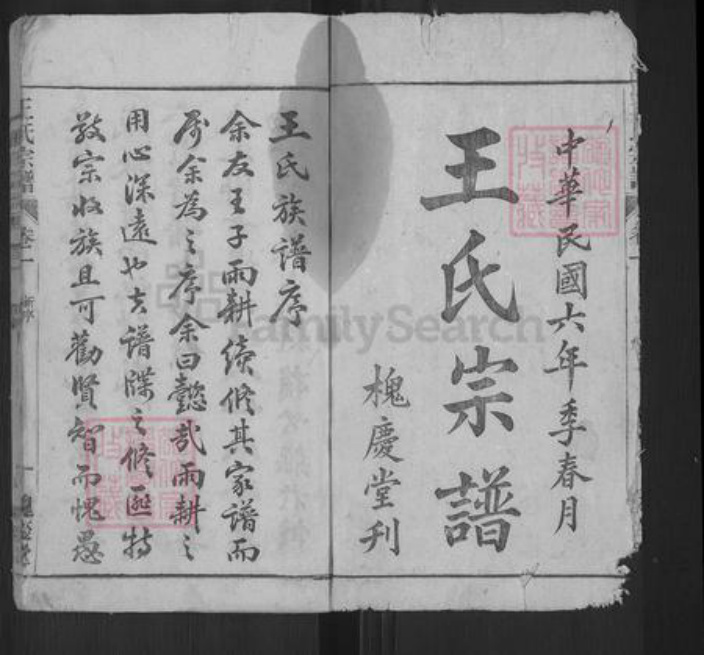 中華民國六年季春月
王氏宗譜
槐慶堂刊
王氏族譜序
余友王子雨耕续修其家譜而
属余為之序余曰懿哉雨耕之
用心深遠也夫譜牒之修匪特
敬宗收族且可勸賢智而愧愚
王氏宗譜
卷一
新序
一
槐慶堂
FamilySearch